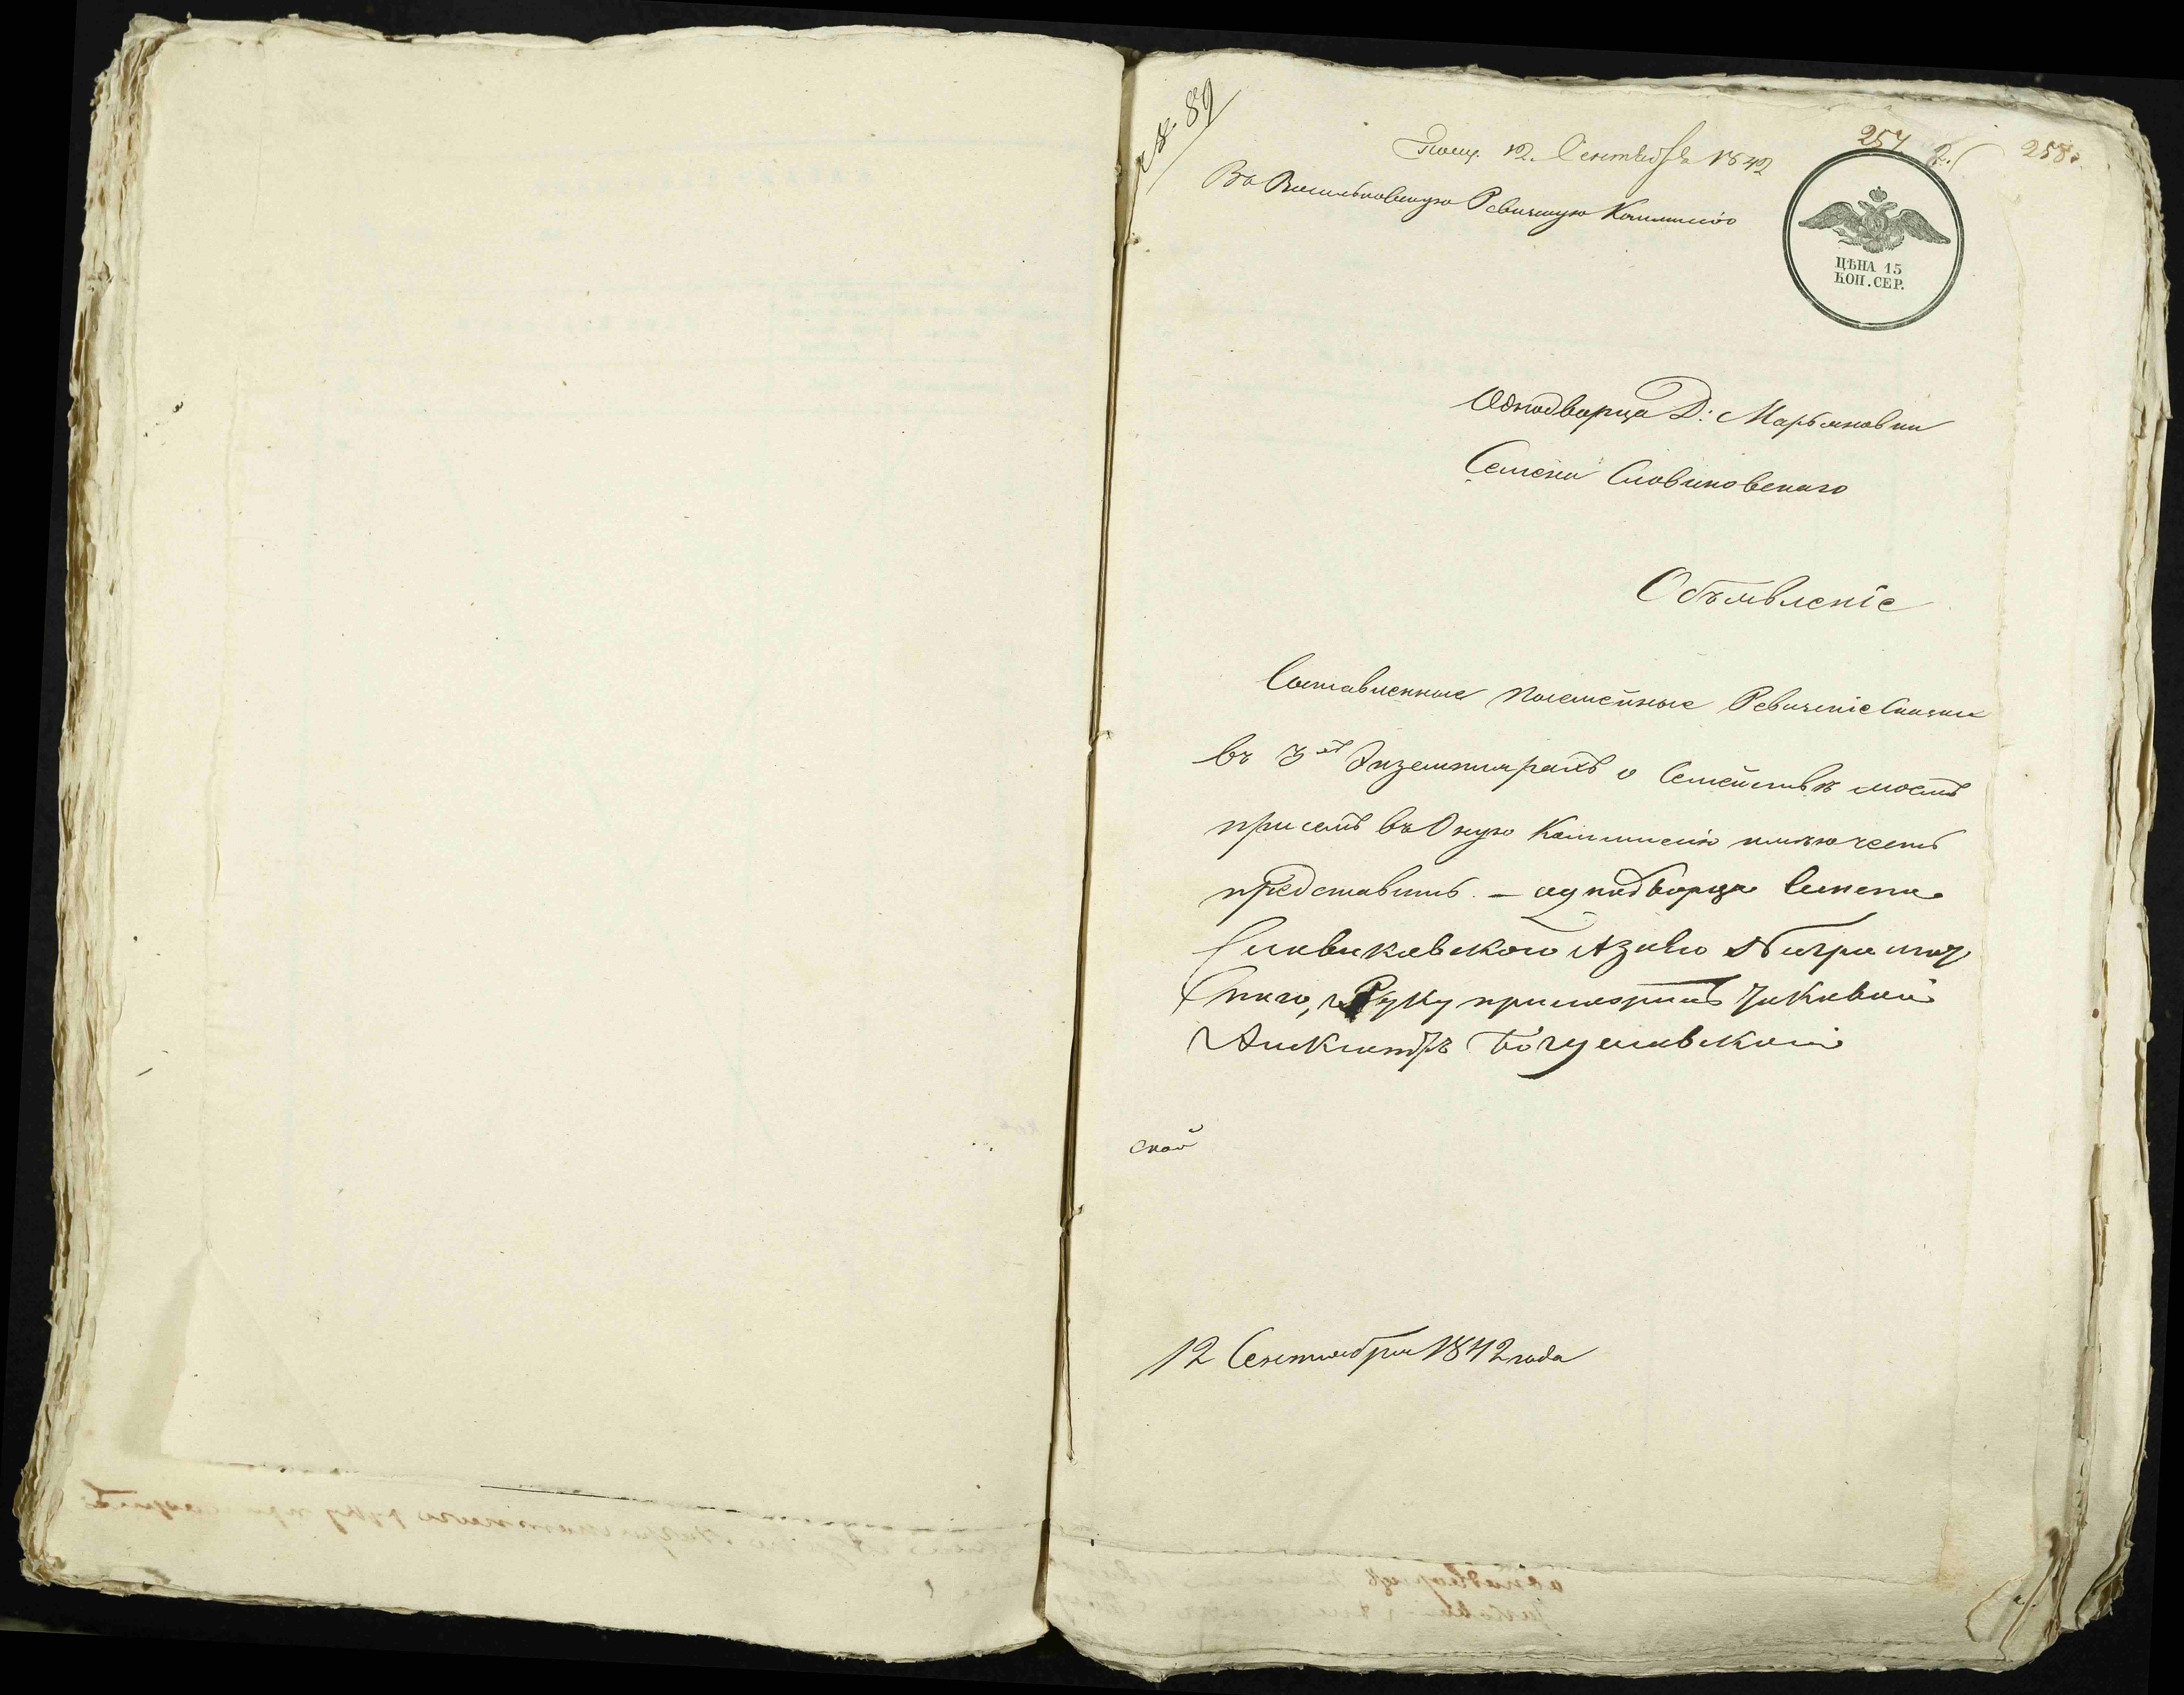 № 89
Получ. 12. Сентября 1842
257
258.
Въ Васильковскую Ревизскую Коммисію
ЦѢНА 15
КОП. СЕР.
Однодворца Д: Марьяновки
Семена Словиковскаго
Объявленіе
Составленные посемейные Ревизскіе Сказки
въ 3хъ Экземплярахъ о Семействѣ моемъ
при семъ въ Оную Коммисію имѣю честь
представить. – однодворца Семена
Словиковского А за его неграмот
Ного, Руку приложилъ
Александръ Богушевский
ской
12 Сентября 1842 года